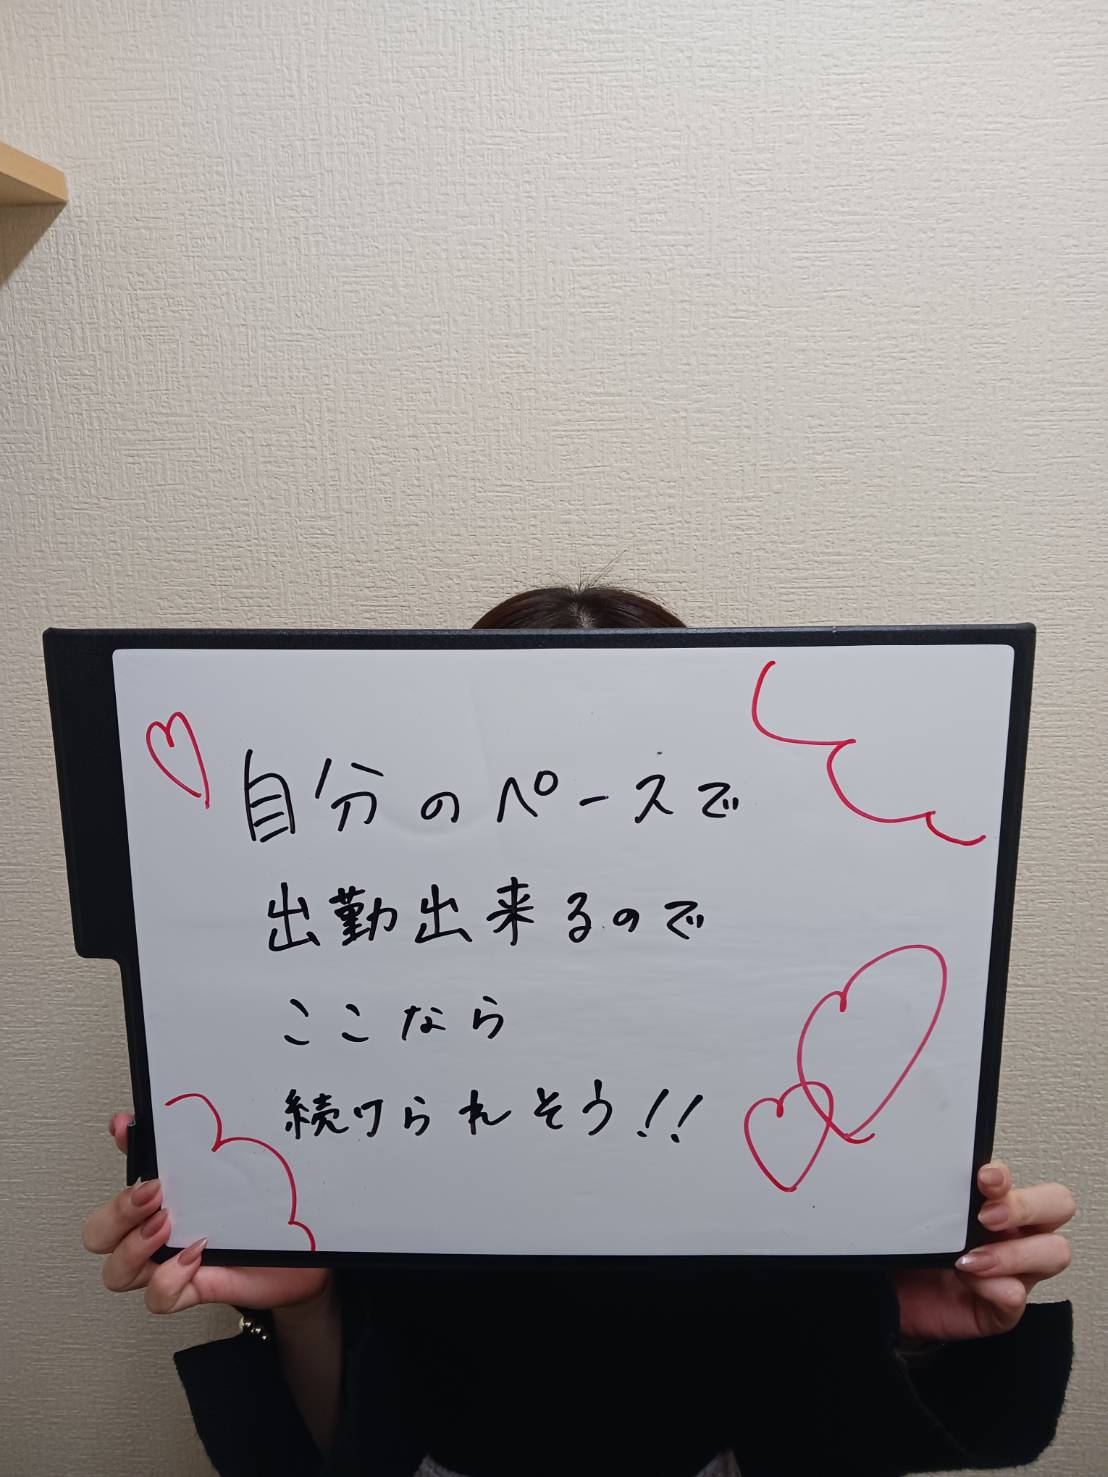 自分のペースで
出勤出来るので
ここなら
続けられそう!!